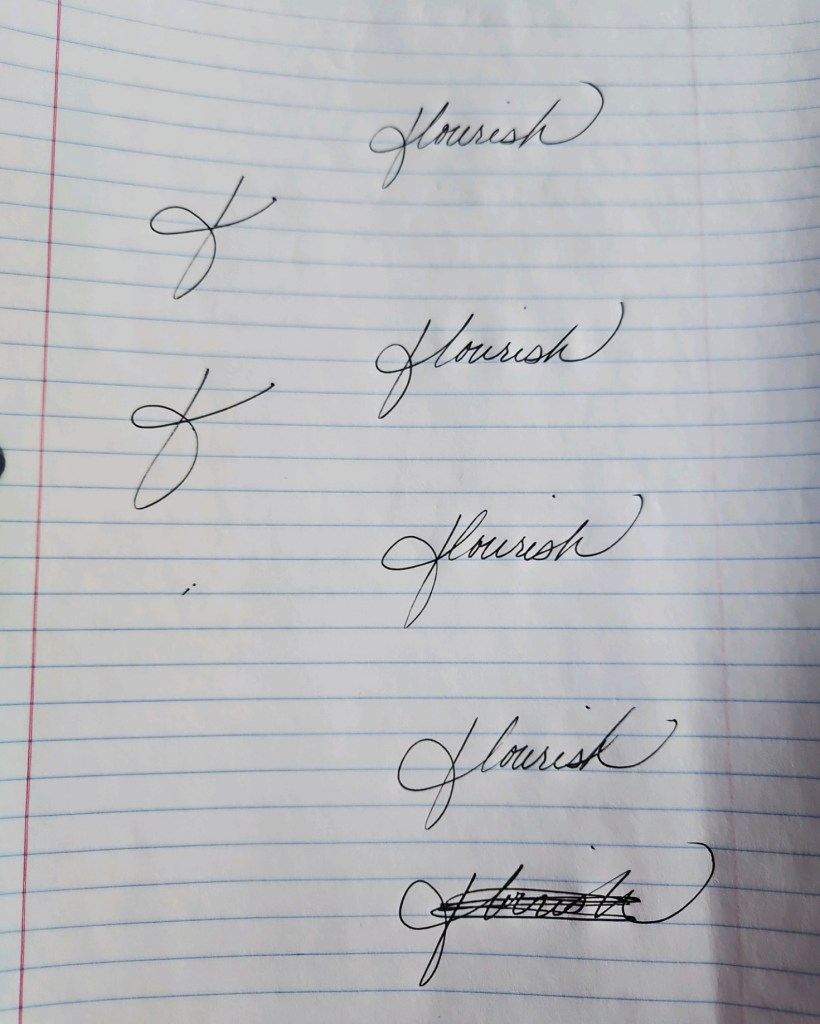 flourish
f
flourish
f
flourish
flourish